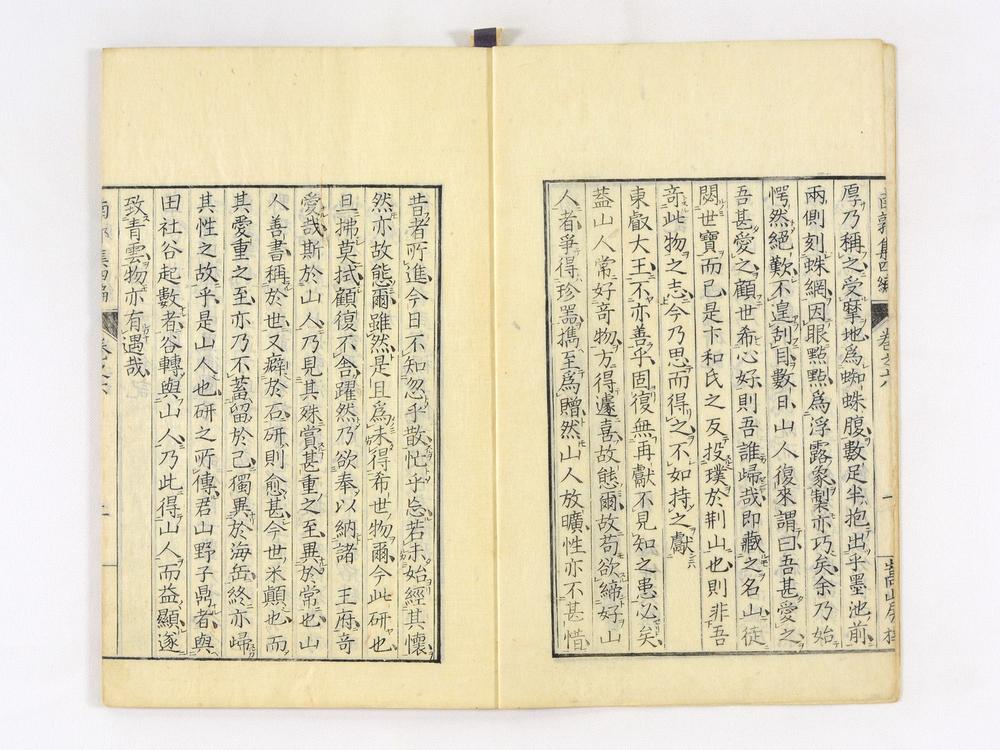 厚乃稱之受摩地為蜘蛛腹數足半抱出乎墨池前
兩側刻蛛網因眼點點為浮露象製亦巧矣余乃始
愕然絕歎不遑刮目數日山人復來謂曰吾甚愛之
吾甚愛之顧世希心好則吾誰歸哉即藏之名山徒
閟世寶而已是卞和氏之反投璞於荆山也則非吾
竒此物之志今乃思而得之不如持之獻
東叡大王不亦善乎固復無再獻不見知之患必矣
蓋山人常好竒物方得遽喜故態爾故苟欲締好山
人者爭得珍噐攜至為贈然山人放曠性亦不甚惜
昔者所進今日不知忽乎散忙乎忘若未始經其懷
然亦故態爾雖然是且為未得希世物爾今此研也
旦拂莫拭顧復不舍躍然乃欲奉以納諸 王府竒
愛哉斯於山人乃見其殊賞甚重之至異於常也山
人善書稱於世又癖於石研則愈甚今世米顛也而
其愛重之至亦乃不蓄留於己獨異於海岳終亦歸
其性之故乎是山人也研之所傳君山野子鼎者與
田社谷起數者谷轉與山人乃此得山人而益顯遂
致青雲物亦有遇哉
南郭集四編 卷之六 一
卷之六 二